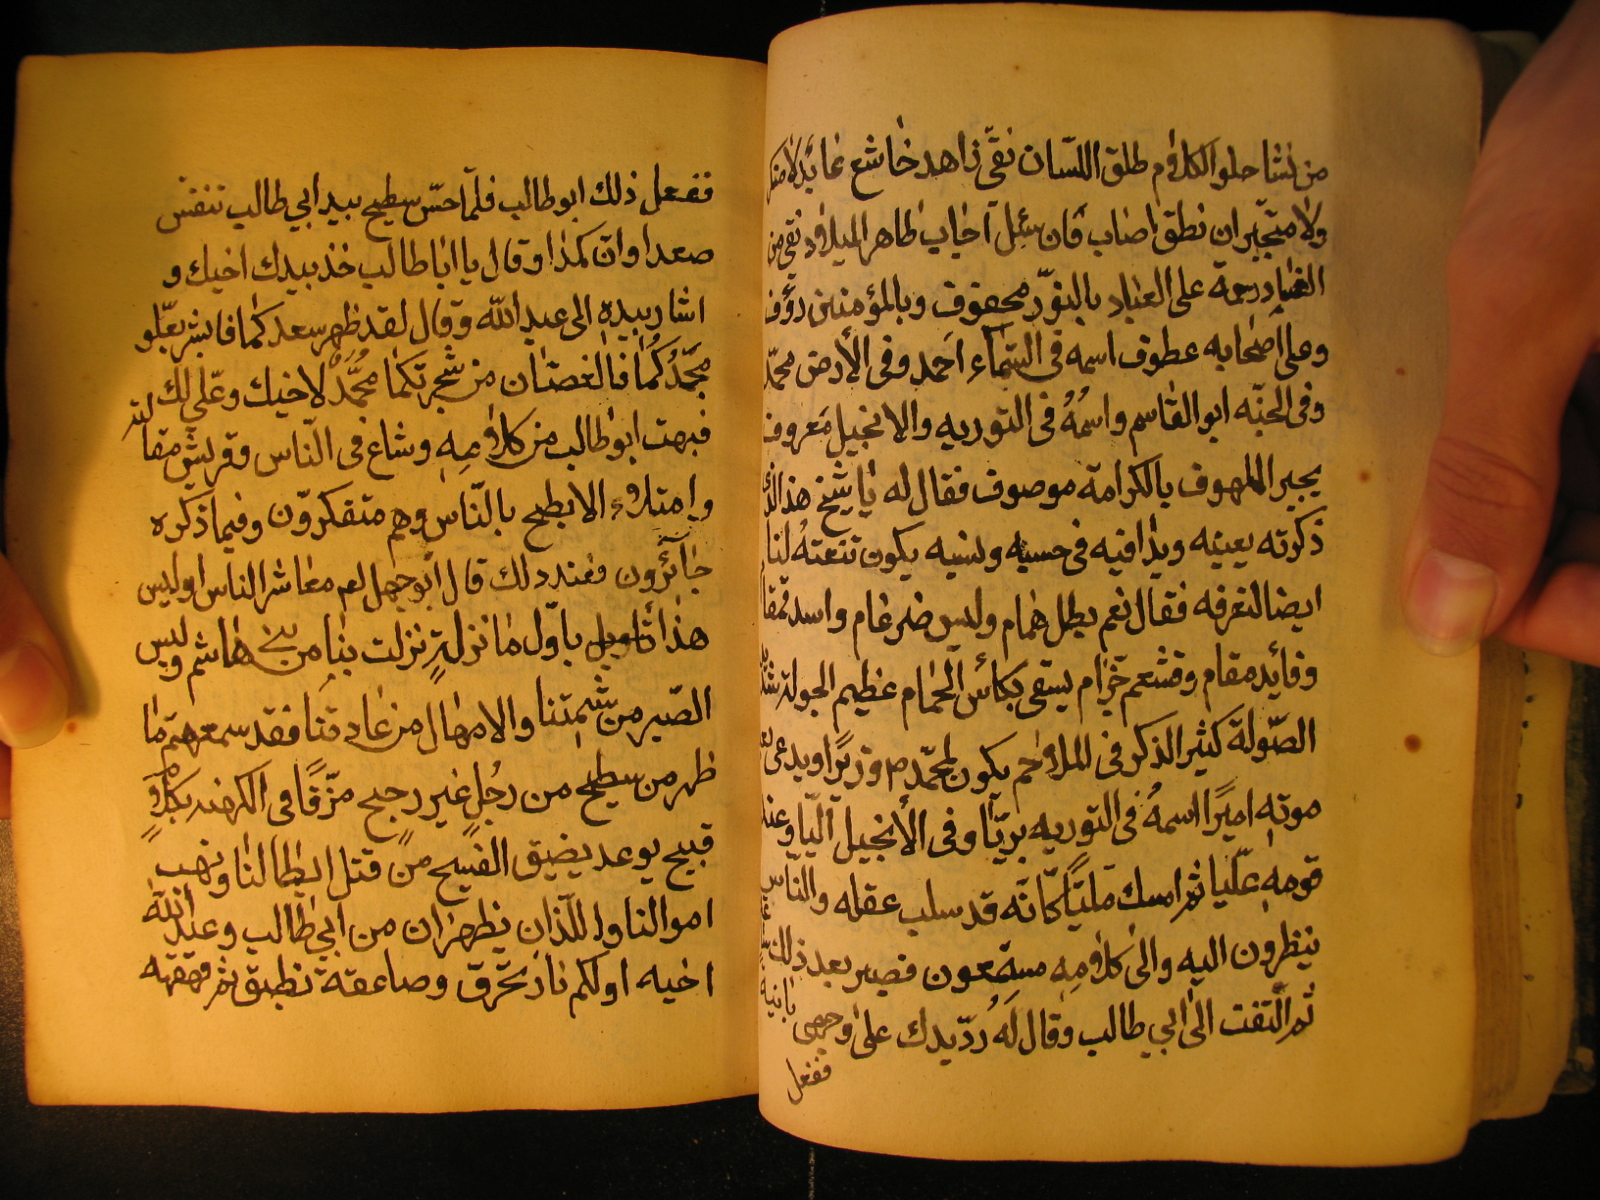 من نشا حلو الكلام طلق اللسان نقي زاهد خاشع عابد لا متكبر
ولا متجبر ان نطق اصاب فان سئل اجاب طاهر الميلاد نقي من
الفساد رحمة على العباد بالنور محفوف وبالمؤمنين رؤف
وعلى اصحابه عطوف اسمه في السماء احمد وفي الأرض محمد
وفي الجنه ابو القاسم واسمه في التوريه والانجيل معروف
يجير الملهوف بالكرامة موصوف فقال له يا شيخ هذا الذي
ذكرته بعينه ويدانيه في حسبه ونسبه يكون تنعته لنا
ايضا لنعرفه فقال نعم بطل همام وليس ضرغام واسد قمقام
وقائد مقام وقشعم خزام يسقى بكأس الحمام عظيم الجولة شديد
الصولة كثير الذكر في الملاحم يكون لمحمد م وزيرا ويدعى بعد
موته اميرا اسمه في التوريه بريا وفي الأنجيل اليا وعند
قومه عليا ثم امسك مليا كانه قد سلب عقله والناس
ينظرون اليه والى كلامه مستمعون فصبر بعد ذلك
ثم التفت الى ابي طالب وقال له رد يدك على وجهي ثانية
ففعل
ففعل ذلك ابو طالب فلما احس سطيح بيد ابي طالب تنفس
صعدا وان كمدا وقال يا ابا طالب خذ بيدك اخيك و
اشار بيده الى عبد الله وقال لقد ظهر سعد كما فابشر بعلو
مجدكما فالغصنان من شجرتكما محمد لاخيك وعلي لك
فبهت ابو طالب من كلامه وشاع في الناس وقريش مقالته
وامتلاء الابطح بالناس وهم متفكرون وفيما ذكره
حائرون فعند ذلك قال ابو جهل لعم معاشر الناس اوليس
هذا باول ما نزلة نزلت بنا من بني هاشم وليس
الصبر من شيمتنا والامهال من عادتنا فقد سمعتم ما
ظهر من سطيح من رجل غير رجيح مزقا في الكهنه بكلام
قبيح يوعد يضيق الفسيح من قتل ابطالنا ونهب
اموالنا واللذان يظهران من ابي طالب وعبد الله
اخيه اولكم نار تحرق وصاعقة تطبق ثم قهقهه